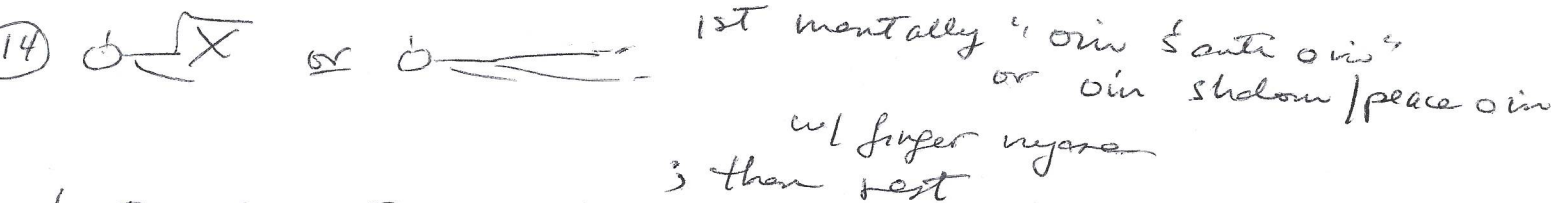 14 X or 1st mentally "om śanti om"
or om shalom / peace om
w/ finger nyasa
; then rest